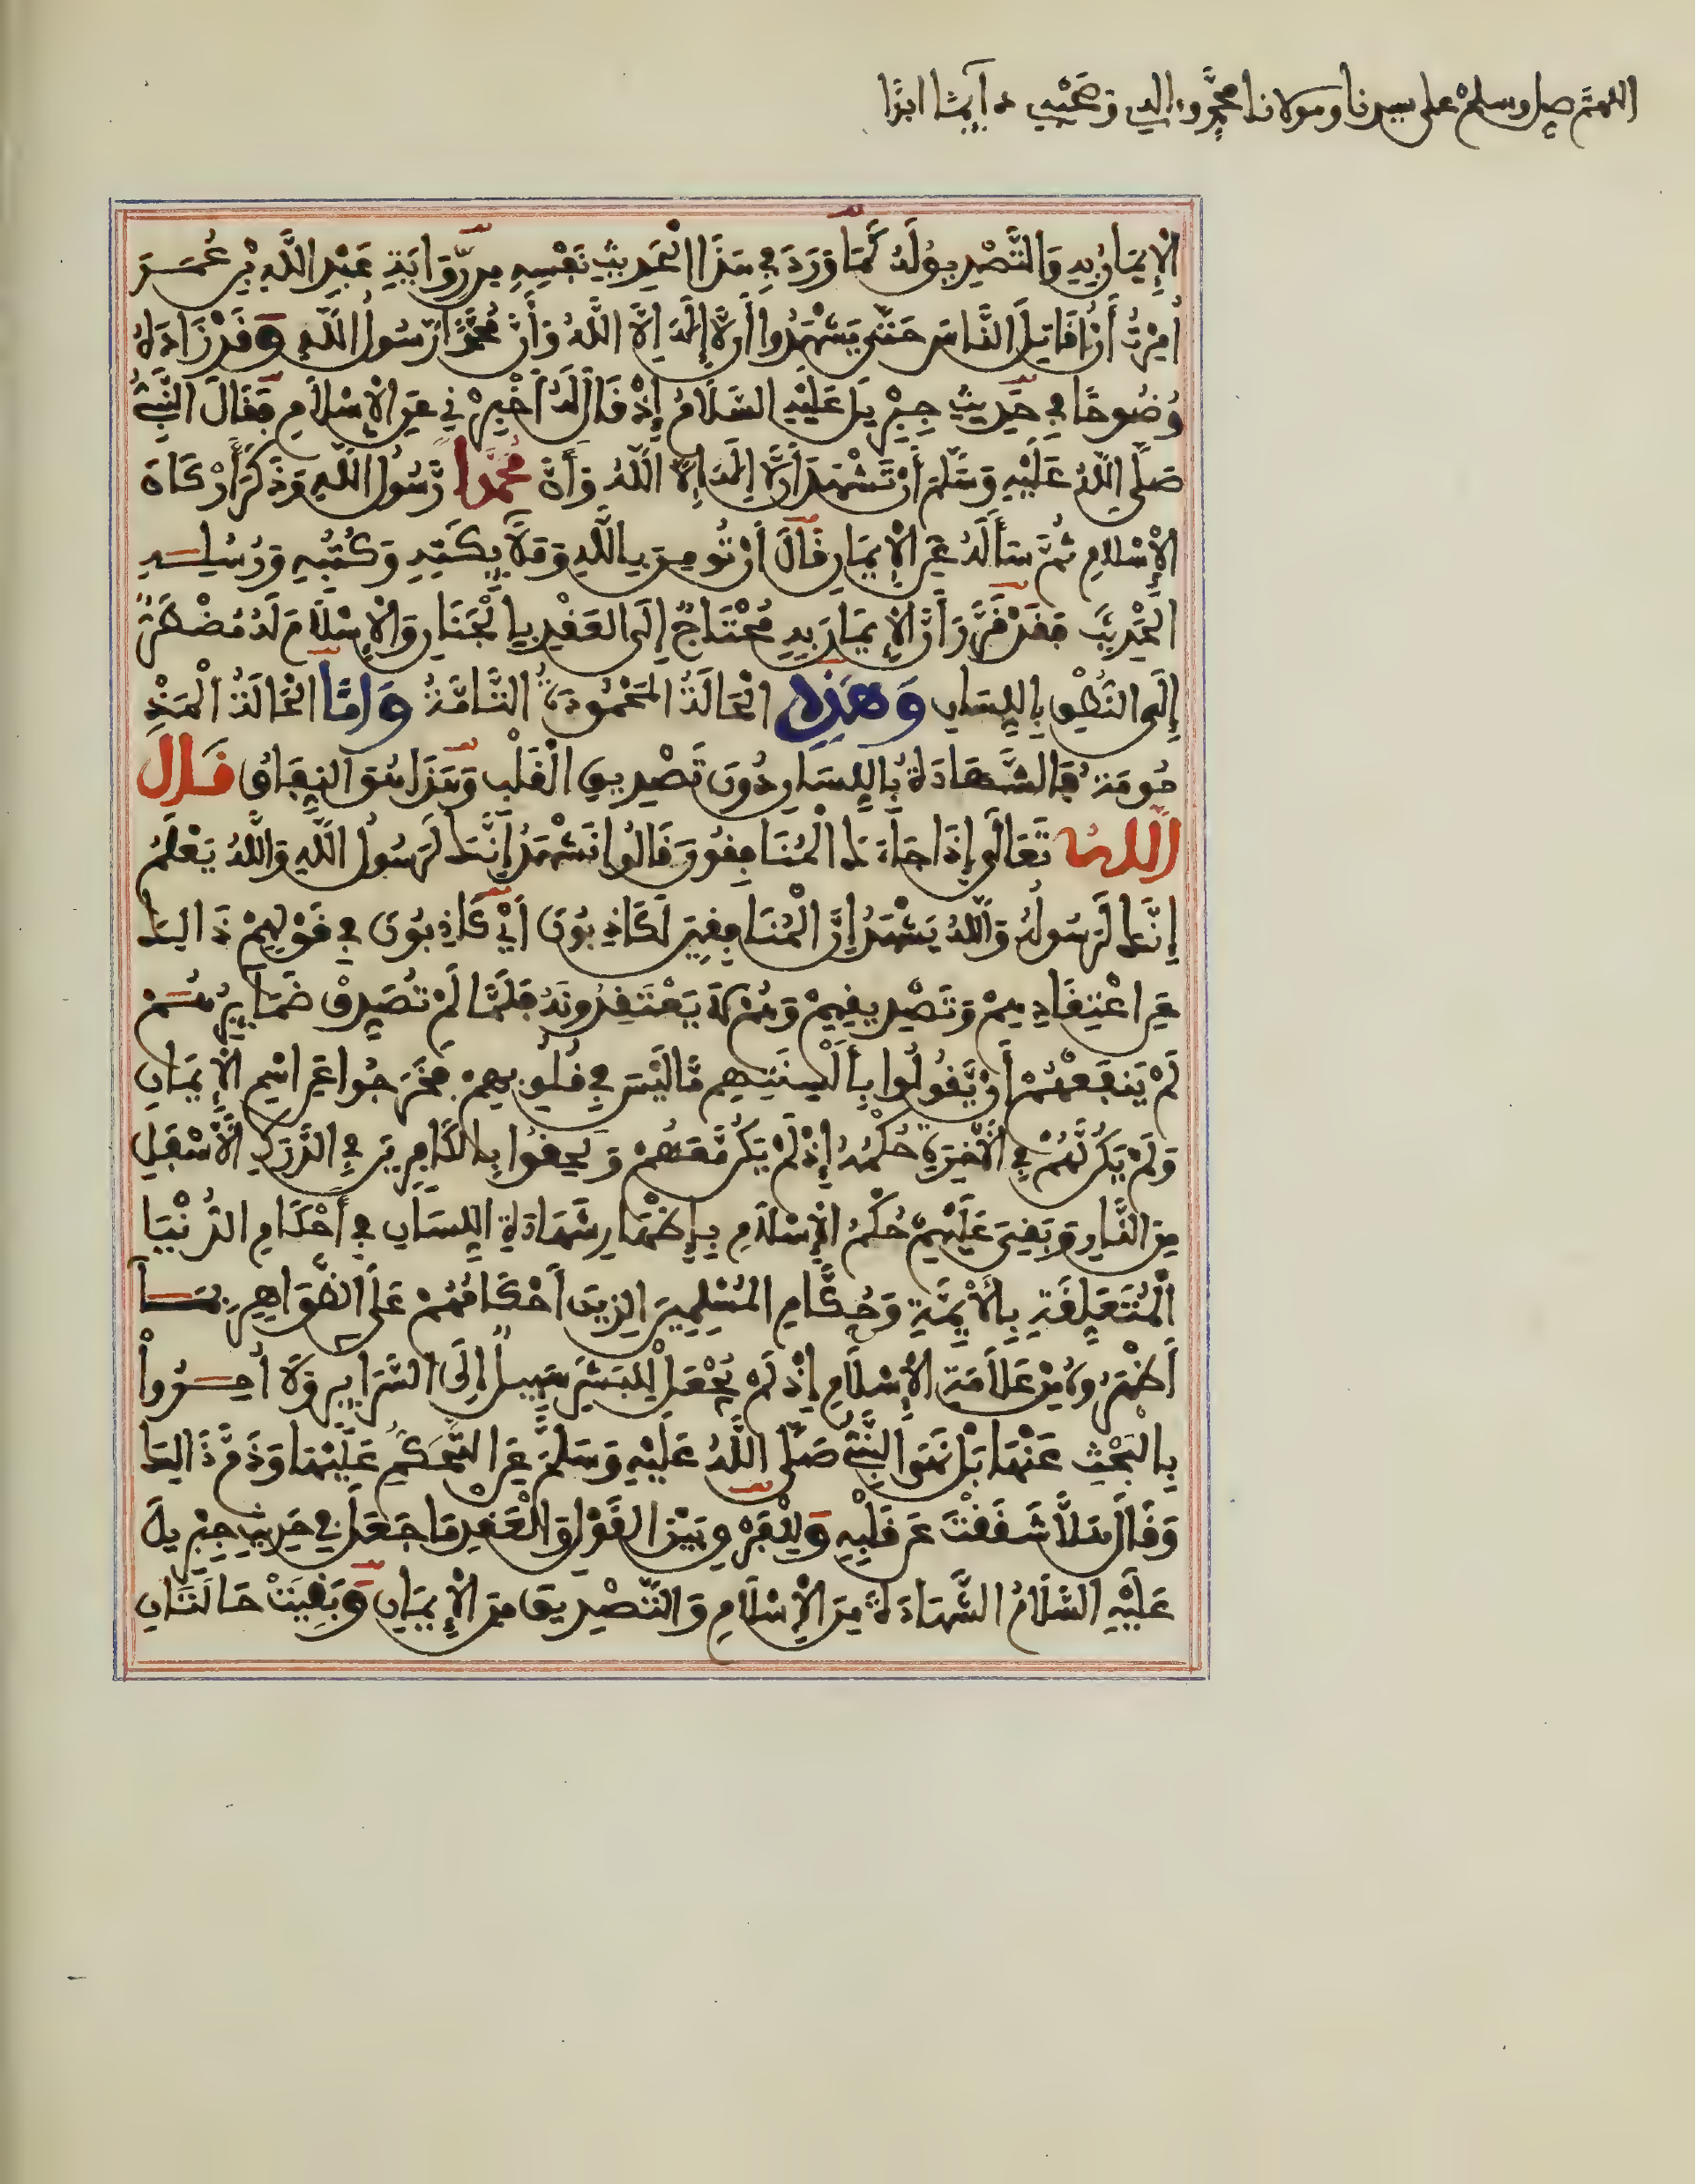 اللهم صل وسلم على سيدنا ومولانا محمد وءاله وصحبه دآيما ابدًا
الْإِيمَانُ بِهِ وَالتَّصْدِيقُ لَهُ كَمَا وَرَدَ فِي هَذَا الْحَدِيثِ نَفْسِهِ مِن رِّوَايَةِ عَبْدِ اللَّهِ بْنِ عُمَرَ
أُمِرْتُ أَنْ أُقَاتِلَ النَّاسَ حَتَّى يَشْهَدُوا أَن لَّا إِلَهَ إِلَّا اللَّهُ وَأَنَّ مُحَمَّدًا رَّسُولُ اللَّهِ وَقَدْ زَادَهُ
وُضُوحًا فِي حَدِيثِ جِبْرِيلَ عَلَيْهِ السَّلَامُ إِذْ قَالَ لَهُ أَخْبِرْنِي عَنِ الْإِسْلَامِ فَقَالَ النَّبِيُّ
صَلَّى اللَّهُ عَلَيْهِ وَسَلَّمَ أَنْ تَشْهَدَ أَن لَّا إِلَهَ إِلَّا اللَّهُ وَأَنَّ مُحَمَّدًا رَّسُولُ اللَّهِ وَذَكَرَ أَرْكَانَ
الْإِسْلَامِ ثُمَّ سَأَلَهُ عَنِ الْإِيمَانِ قَالَ أَنْ تُومِنَ بِاللَّهِ وَمَلَٰٓئِكَتِهِ وَكُتُبِهِ وَرُسُلِهِ
الْحَدِيثَ فَقَدْ قَرَّرَ أَنَّ الْإِيمَانَ بِهِ مُحْتَاجٌ إِلَى الْعَقْدِ بِالْجَنَانِ وَالْإِسْلَامَ لَهُ مُضْطَرٌّ
إِلَى النُّطْقِ بِاللِّسَانِ وَهَذِهِ الْحَالَةُ الْمَحْمُودَةُ التَّامَّةُ وَأَمَّا الْحَالَةُ الْمَذْ
مُومَةُ فَالشَّهَادَةُ بِاللِّسَانِ دُونَ تَصْدِيقِ الْقَلْبِ وَهَذَا هُوَ النِّفَاقُ قَالَ
اللهُ تَعَالَى إِذَا جَآءَكَ الْمُنَافِقُونَ قَالُوا نَشْهَدُ إِنَّكَ لَرَسُولُ اللَّهِ وَاللَّهُ يَعْلَمُ
إِنَّكَ لَرَسُولُهُ وَاللَّهُ يَشْهَدُ إِنَّ الْمُنَافِقِينَ لَكَاذِبُونَ أَيْ كَاذِبُونَ فِي قَوْلِهِمْ ذَالِكَ
عَنِ اعْتِقَادِهِمْ وَتَصْدِيقِهِمْ وَهُمْ لَا يَعْتَقِدُونَهُ فَلَمَّا لَمْ تُصَدِّقْ ضَمَآئِرُهُمْ
لَمْ يَنفَعْهُمْ أَنْ يَّقُولُوا بِأَلْسِنَتِهِم مَّا لَيْسَ فِي قُلُوبِهِمْ فَخَرَجُوا عَنِ اسْمِ الْإِيمَانِ
وَلَمْ يَكُن لَّهُمْ فِي الْأَخِرَةِ حُكْمُهُ إِذْ لَمْ يَكُن مَّعَهُمْ وَلَحِقُوا بِالْكَافِرِينَ فِي الدَّرَكِ الْأَسْفَلِ
مِنَ النَّارِ وَبَقِيَ عَلَيْهِمْ حُكْمُ الْإِسْلَامِ بِإِظْهَارِ شَهَادَةِ اللِّسَانِ فِي أَحْكَامِ الدُّنْيَا
الْمُتَعَلِّقَةِ بِالْأَيِمَّةِ وَحُكَّامِ الْمُسْلِمِينَ الذِينَ أَحْكَامُهُمْ عَلَى الظَّوَاهِرِ بِمَآ
أَظْهَرُوهُ مِنْ عَلَامَةِ الْإِسْلَامِ إِذْ لَمْ يُجْعَلْ لِلْبَشَرِ سَبِيلٌ إِلَى السَّرَآئِرِ وَلَا أُمِرُوا
بِالْبَحْثِ عَنْهَا بَلْ نَهَى النَّبِيُّ صَلَّى اللَّهُ عَلَيْهِ وَسَلَّمَ عَنِ التَّحَكُّمِ عَلَيْهَا وَذَمَّ ذَالِكَ
وَقَالَ هَلَّا شَقَقْتَ عَن قَلْبِهِ وَالْفَرْقُ بَيْنَ الْقَوْلِ وَالْعَقْدِ مَا جَعَلَ فِي حَدِيثِ جِبْرِيلَ
عَلَيْهِ السَّلَامُ الشَّهَادَةُ مِنَ الْإِسْلَامِ وَالتَّصْدِيقَ مِنَ الْإِيمَانِ وَبَقِيَتْ حَالَتَانِ